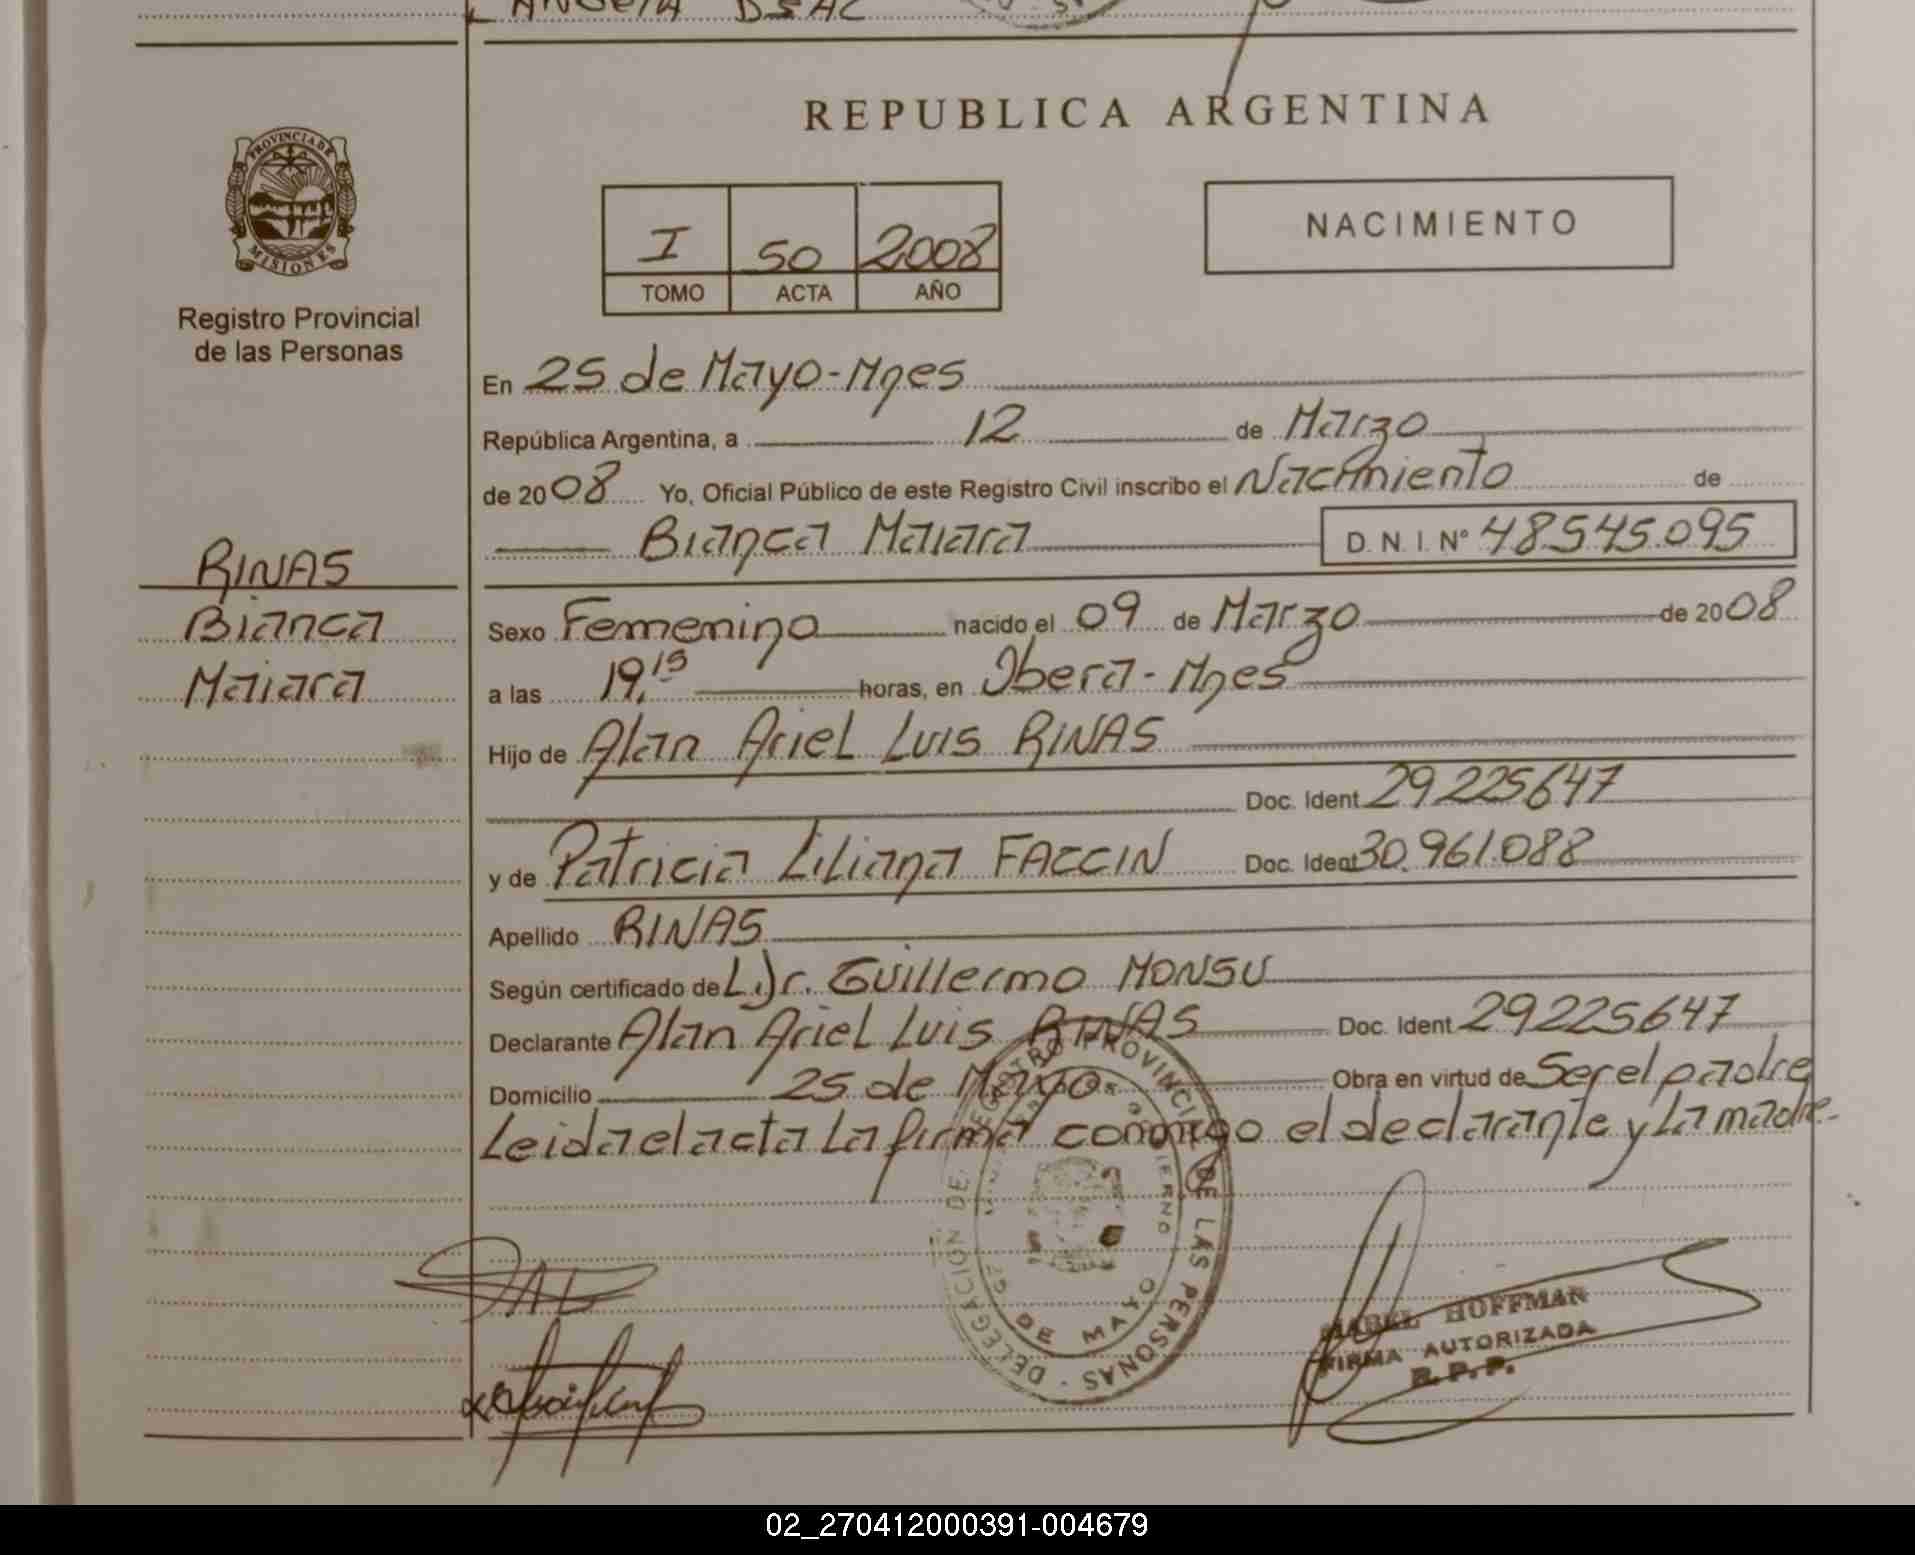 REPUBLICA ARGENTINA
PROVINCIA DE
MISIONES
Registro Provincial
de las Personas
I 50 2008
TOMO ACTA AÑO
NACIMIENTO
En 25 de Mayo-Mnes
República Argentina, a 12 de Marzo
de 2008 Yo, Oficial Público de este Registro Civil inscribo el Nacimiento de
Bianca Maiara D.N.I. Nº 48545.095
RINAS
Bianca
Maiara
Sexo Femenino nacido el 09 de Marzo de 2008
a las 19,15 horas, en Obera-Mnes
Hijo de Alan Ariel Luis RINAS
Doc. Ident 29225647
y de Patricia Liliana FACCIN Doc. Ident 30.961.088
Apellido RINAS
Según certificado de Guillermo MONSU
Declarante Alan Ariel Luis RINAS Doc. Ident 29225647
Domicilio 25 de Mayo Obra en virtud de Ser el padre
Leida el acta La firma conmigo el declarante y La madre.-
REGISTRO PROVINCIAL DE LAS PERSONAS - DELEGACION DE
25 DE MAYO
MABEL HOFFMAN
FIRMA AUTORIZADA
R.P.P.
02_270412000391-004679